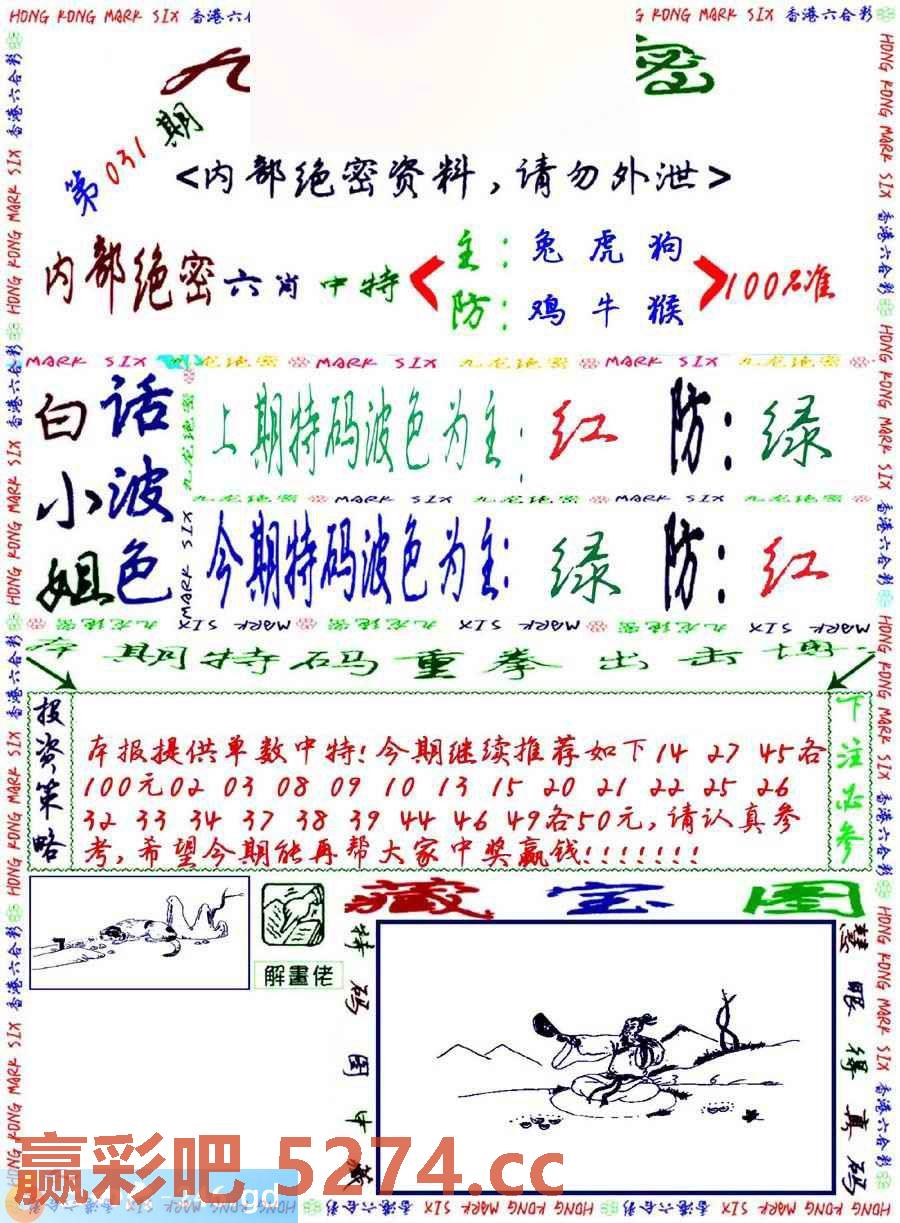 HONG KONG MARK SIX 香港六合彩
九 密
第031期
<内部绝密资料,请勿外泄>
内部绝密六肖中特
主:兔虎狗
防:鸡牛猴
100%准
MARK SIX 九龙绝密 MARK SIX 九龙绝密 MARK SIX 九龙绝密
白话小波姐色
上期特码波色为主:红 防:绿
九龙绝密 MARK SIX 九龙绝密 MARK SIX
今期特码波色为主:绿 防:红
MARK SIX 九龙绝密 MARK SIX 九龙绝密 MARK SIX
本期特码重拳出击博
投资策略
本报提供单数中特!今期继续推荐如下14 27 45各
100元02 03 08 09 10 13 15 20 21 22 25 26
32 33 34 37 38 39 44 46 49各50元,请认真参
考,希望今期能再帮大家中奖赢钱!!!!!!!
下注必参
解畫佬
藏宝图
特码图中藏
慧眼得真码
3 6
7
赢彩吧 5274.cc